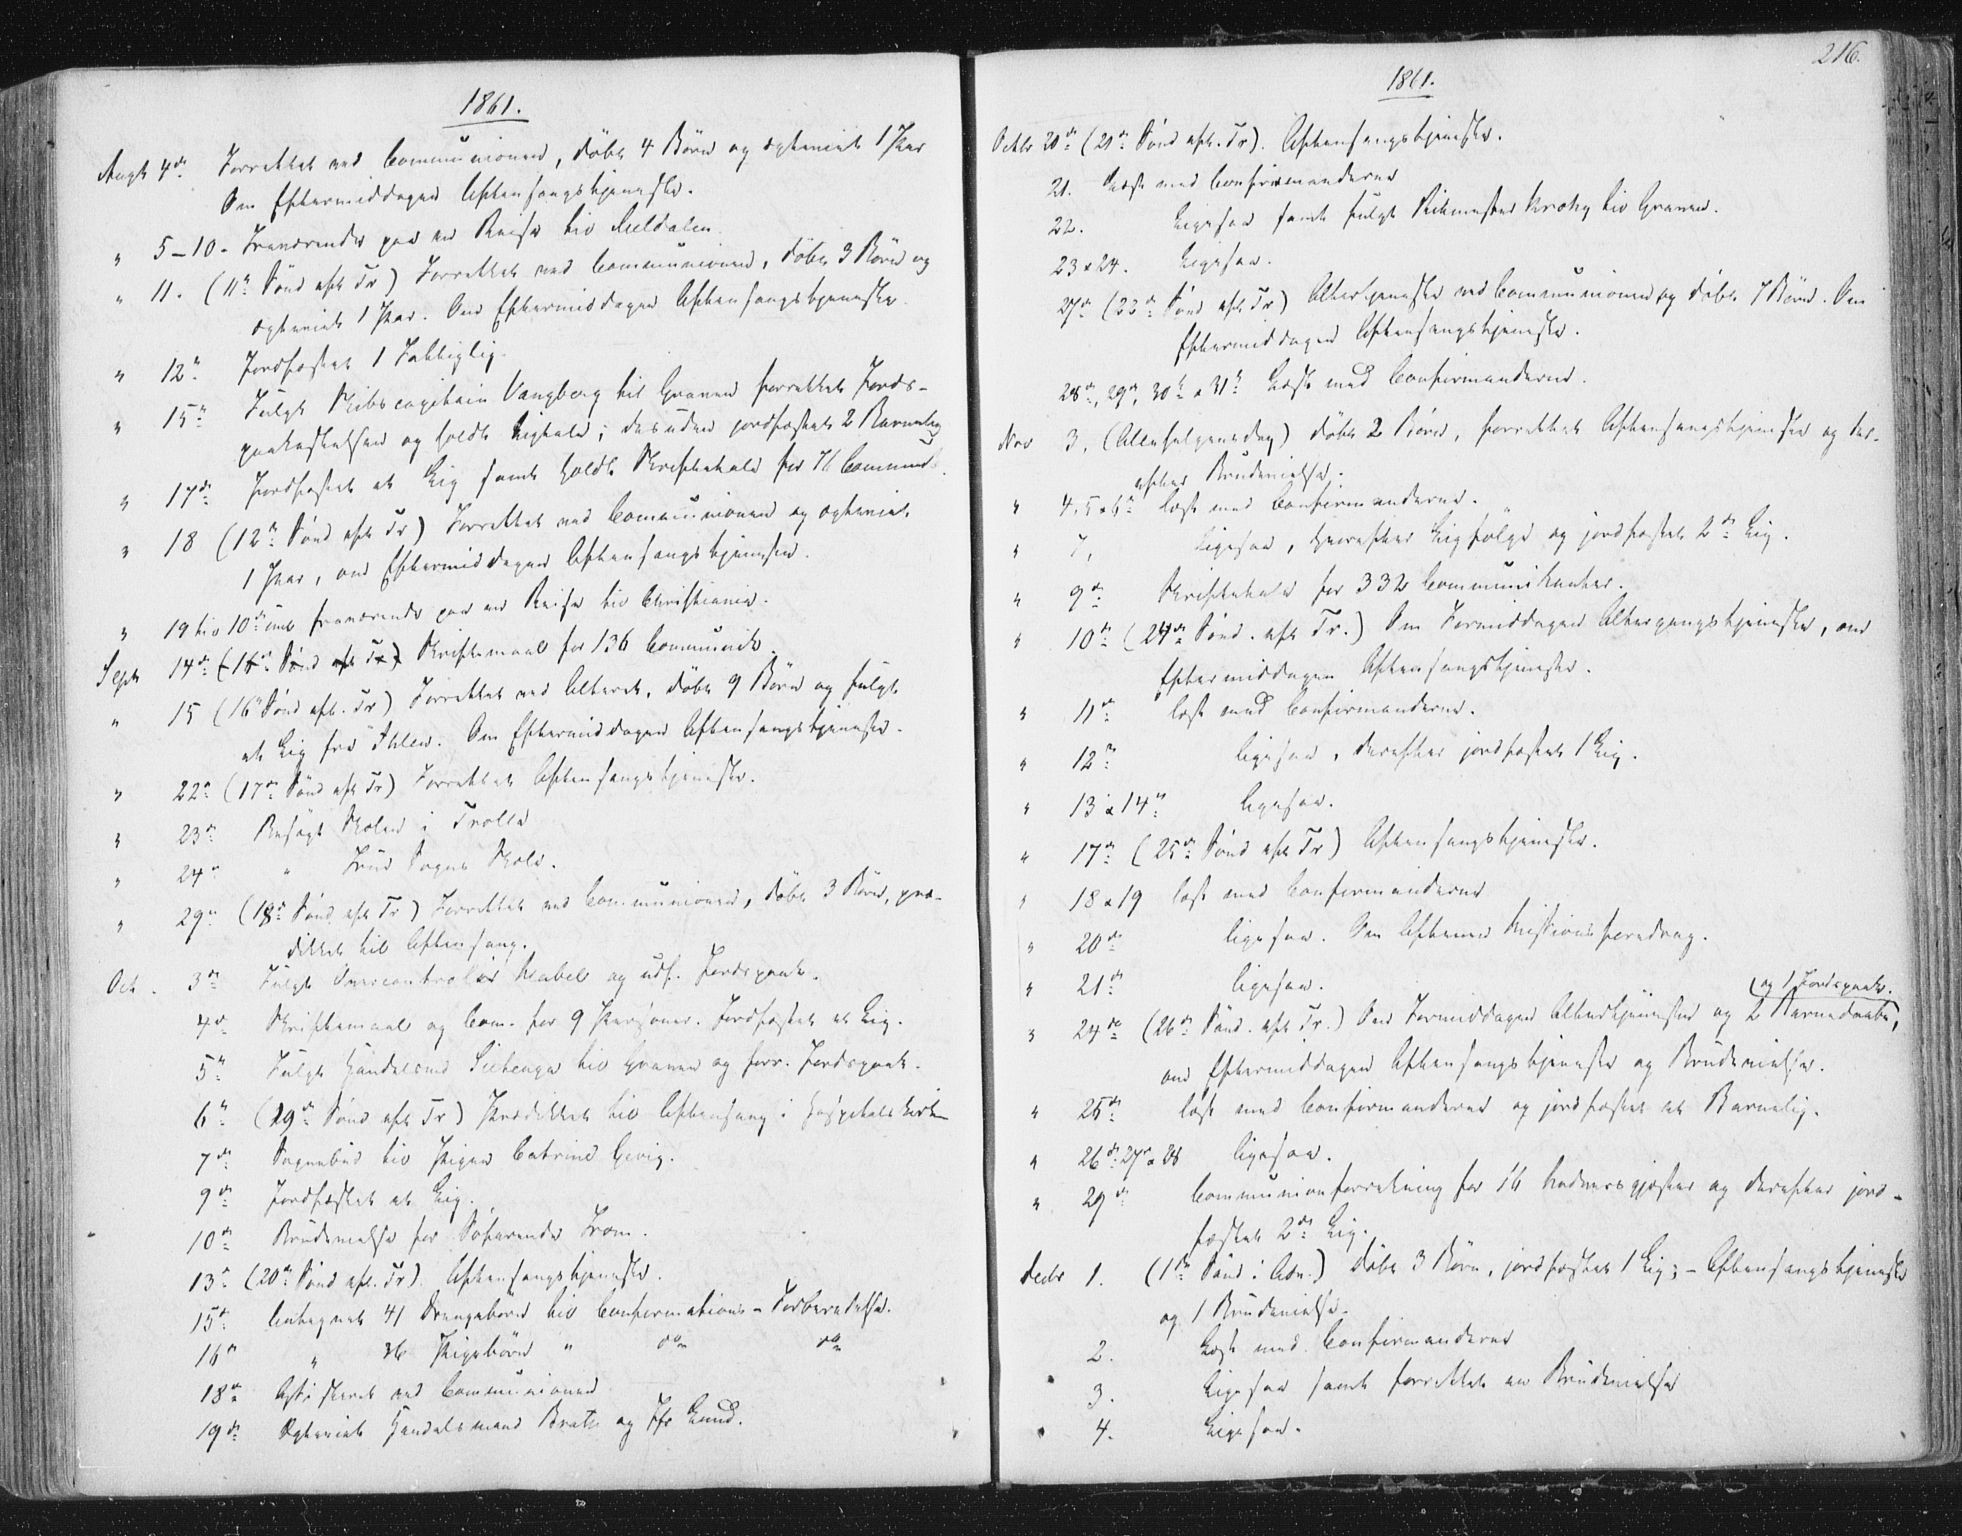 1861.
Augt 4de Forrettet ved Communionen, døbt 4 Børn og ægteviet 1 Par
Om Eftermiddagen Aftensangstjeneste.
" 5-10. Fraværende paa en Reise til Meldalen.
" 11. (11te Sønd eft Tr) Forrettet ved Communionen, døbt 3 Børn og
ægteviet 1 Par. Om Eftermiddagen Aftensangstjeneste.
" 12te Jordfæstet 1 Fattiglig.
" 15de Fulgt Skibscapitain Vangberg til Graven forrettet Jords-
paakastelsen og holdt Ligtale; desuden jordfæstet 2 Barnelig
" 17de Jordfæstet et Lig samt holdt Skriftetale for 76 Commun.
" 18 (12te Sønd eft Tr) Forrettet ved Communionen og ægteviet
1 Par, om Eftermiddagen Aftensangstjenesten.
" 19 til 10de incl fraværende paa en Reise til Christiania.
Sept 14de (16de Sønd eft Tr) Skriftemaal for 136 Communik.
" 15 (16de Sønd eft. Tr) Forrettet ved Alteret, døbt 9 Børn og fulgt
et Lig fra Ihlen. Om Eftermiddagen Aftensangstjeneste.
" 22de (17de Sønd eft Tr) Forrettet Aftensangstjeneste.
" 23de Besøgt Skolen i Trolla
" 24de " Frue Sogns Skole.
" 29de (18de Sønd eft Tr) Forrettet ved Communionen, døbt 3 Børn, præ-
diket til Aftensang.
Oct. 3de Fulgt Overcontrolør og udf. Jordspaak.
4de Skriftemaal og Com. for 9 Personer. Jordfæstet et Lig.
5te Fulgt Handelsmd til Graven og forr. Jordspaak.
6te (19de Sønd eft Tr) Prædiket til Aftensang i Hospitalskirken
7de Sognebud til Pigen Catrine Gevig.
9de Jordfæstet et Lig.
10de Brudevielse for Søfarende From.
13de (20de Sønd eft. Tr). Aftensangstjeneste.
15de Antegnet 41 Drengebørn til Confirmations-Forberedelse.
16de " 36 Pigebørn " do do
18de Assisteret ved Communionen
19de Ægteviet Handelsmand Brate og Jfr Lund.
216.
1861.
Octbr 20de (21de Sønd eft. Tr). Aftensangstjeneste.
21. Læst med Confirmanderne
22. Ligesaa samt fulgt Ritmester Krohg til Graven.
23 & 24. Ligesaa.
27de (22de Sønd eft Tr) Altertjeneste ved Communionen og døbt 7 Børn. Om
Eftermiddagen Aftensangstjeneste.
28de, 29de, 30te & 31te Læst med Confirmanderne.
Nov 3. (Allehelgensdag) døbt 2 Børn, forrettet Aftensangstjeneste og der-
efter Brudevielse.
" 4, 5 & 6te læst med Confirmanderne.
" 7, Ligesaa, derefter Ligfølge og jordfæstet 2de Lig.
" 9de Skriftetale for 332 Communikanter.
" 10de (24de Sønd. eft Tr.) Om Formiddagen Altergangstjeneste, om
Eftermiddagen Aftensangstjeneste.
" 11te læst med Confirmanderne.
" 12te ligesaa, derefter jordfæstet 1 Lig.
" 13 & 14de ligesaa.
" 17de (25de Sønd eft Tr) Aftensangstjeneste.
" 18 & 19 læst med Confirmanderne
" 20de ligesaa. Om Aftenen Missionsforedrag.
" 21de ligesaa.
(og 1 Jordspaak.
" 24de (26de Sønd. eft Tr.) Om Formiddagen Altertjenesten og 2 Barnedaabe,
om Eftermiddagen Aftensangstjeneste og Brudevielse.
" 25de læst med Confirmanderne og jordfæstet et Barnelig.
" 26de 27de & 28 ligesaa.
" 29de Communionforretning for 16 Nadvergjæster og derefter jord-
fæstet 2de Lig.
Decbr 1. (1ste Sønd i Adv.) døbt 3 Børn, jordfæstet 1 Lig; - Aftensangstjeneste
og 1 Brudevielse.
2. Læst med Confirmanderne
3. Ligesaa samt forrettet en Brudevielse
4. Ligesaa.